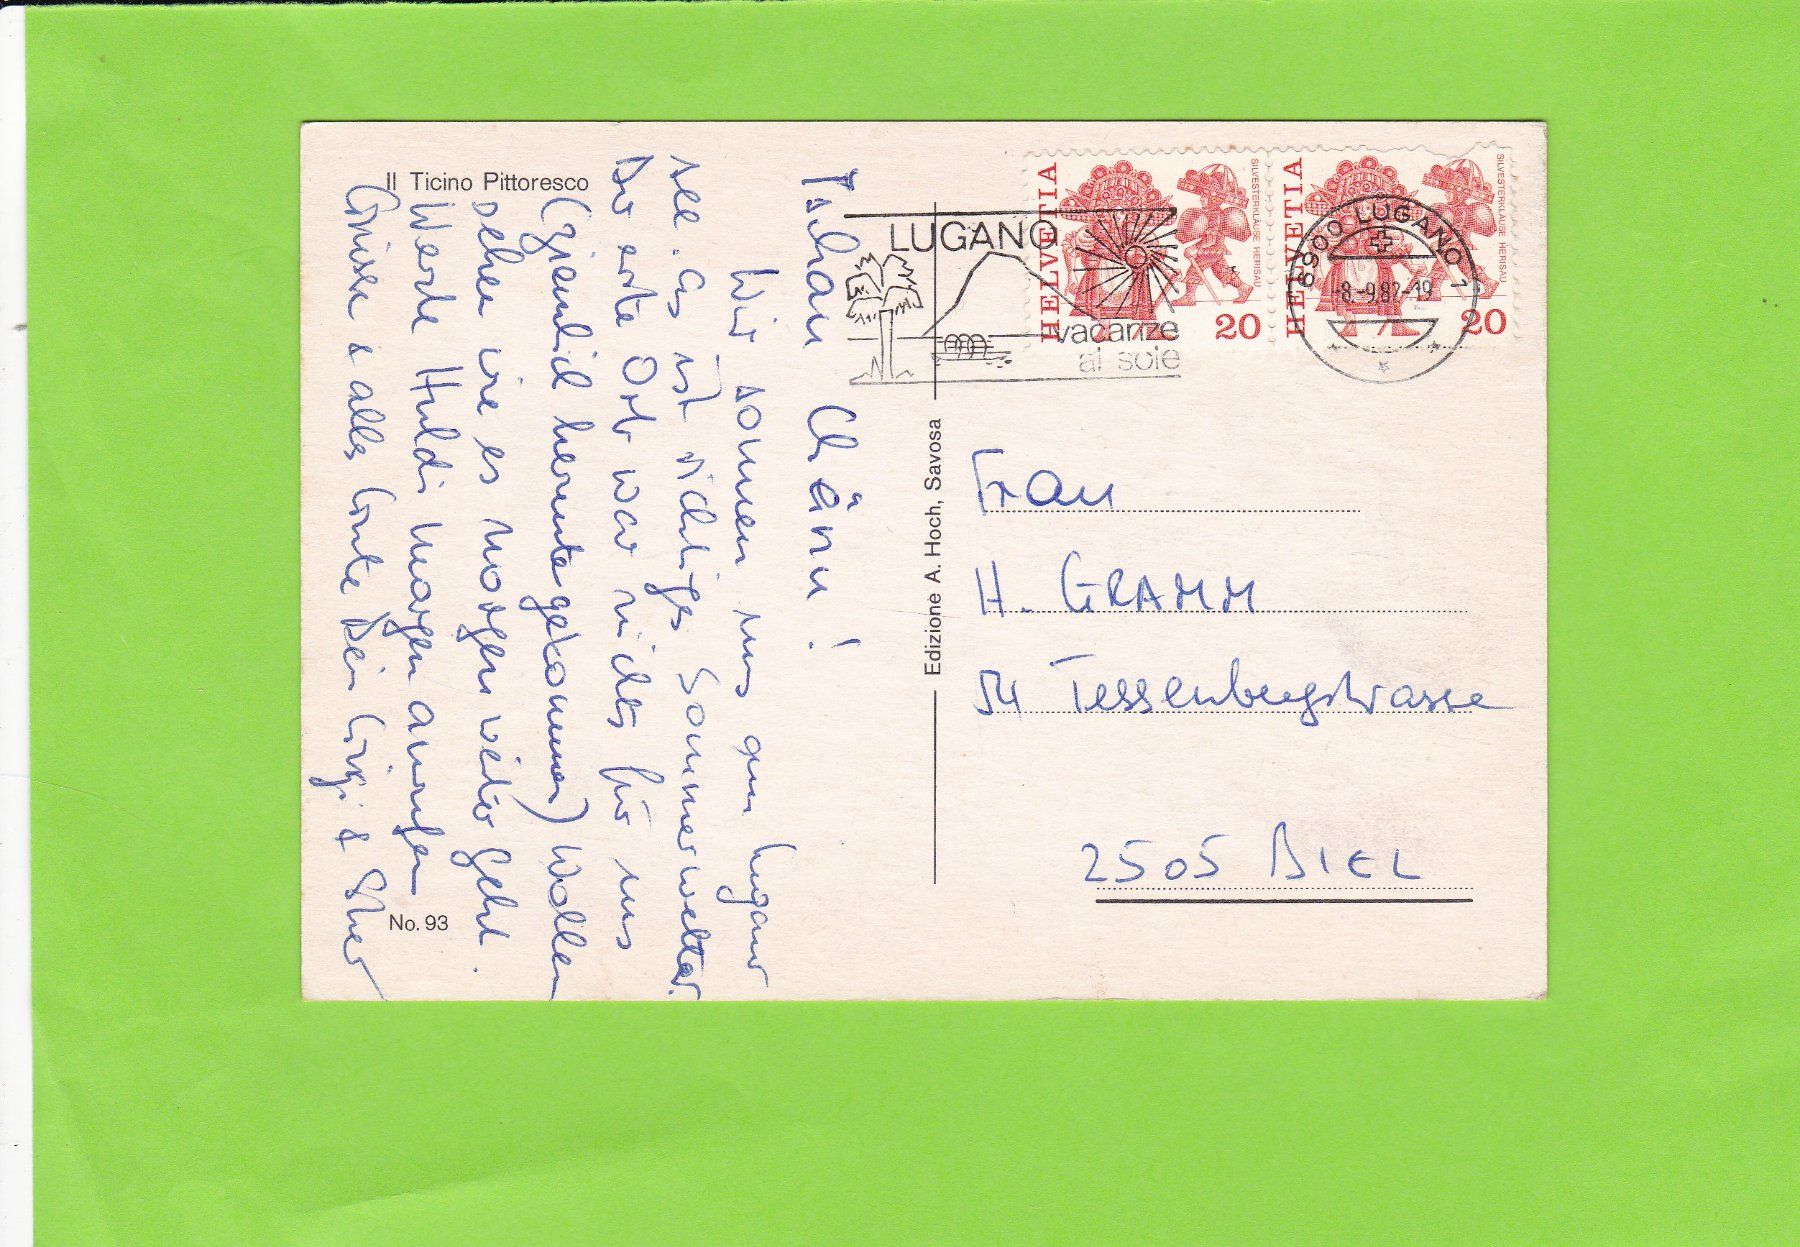 Il Ticino Pittoresco
Tschau Chänu!
Wir sonnen uns am Lugano
see. Es ist richtiges Sommerwetter.
Der erste Ort war nichts für uns
(ziemlich heruntergekommen) Wollen
sehen wie es morgen weiter geht.
Werde Huldi morgen anrufen
Grüsse & alles Gute Dein &
No. 93
Edizione A. Hoch, Savosa
LUGANO
vacanze
al sole
HELVETIA
SILVESTERKLÄUSE HERISAU
20
HELVETIA
SILVESTERKLÄUSE HERISAU
20
6900 LUGANO 1
-8.-9.82-19
Frau
H. GRAMM
54 Tessenbergstrasse
2505 BIEL